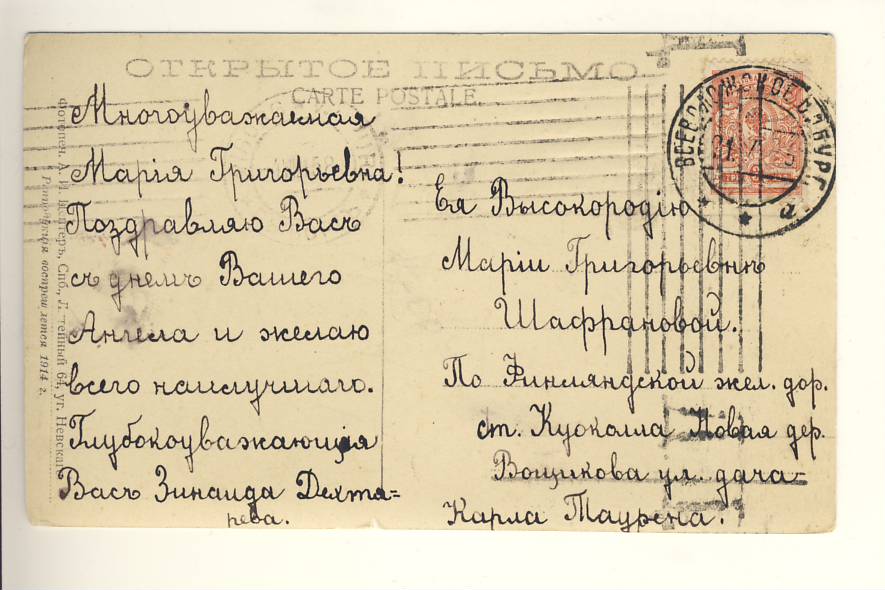 ОТКРЫТОЕ ПИСЬМО
CARTE POSTALE.
Многоуважаемая
Марія Григорьевна!
Поздравляю Васъ
съ днемъ Вашего
Ангела и желаю
всего наилучшаго.
Глубокоуважающія
Васъ Зинаида Дехтя=
рева.
Ея Высокородію
Маріи Григорьевнѣ
Шафрановой.
По Финляндской жел. дор.
ст. Куоколла Новая дер.
Вощикова ул. дача
Карла Таурена.
ВСЕВОЛОЖСКОЕ П. ПБУРГ.
а
Спб., Литейный 64, уг. Невскаго
воспрещается 1914 г.